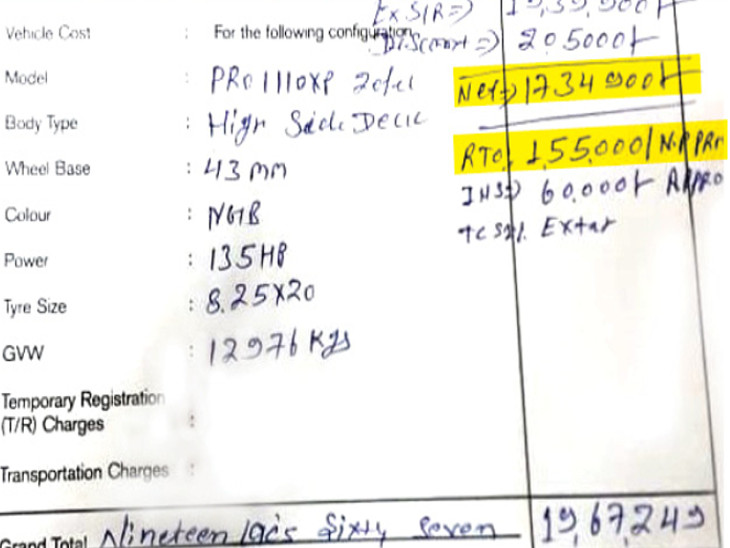 Ex S/R=)
Vehicle Cost : For the following configuration Discount =) 205000/-
Model : PRO1110XP 20fel Net=) 1734900/-
Body Type : High Side Deck
RTO, 1,55,000/ N.P PR
Wheel Base : 43 mm
INS=) 60,000/- APPRO
Colour : NGIB
tcs 2%. Extar
Power : 135HP
Tyre Size : 8.25X20
GVW : 12976 Kgs
Temporary Registration
(T/R) Charges :
Transportation Charges :
Grand Total Nineteen lac's Sixty Seven 19,67,249